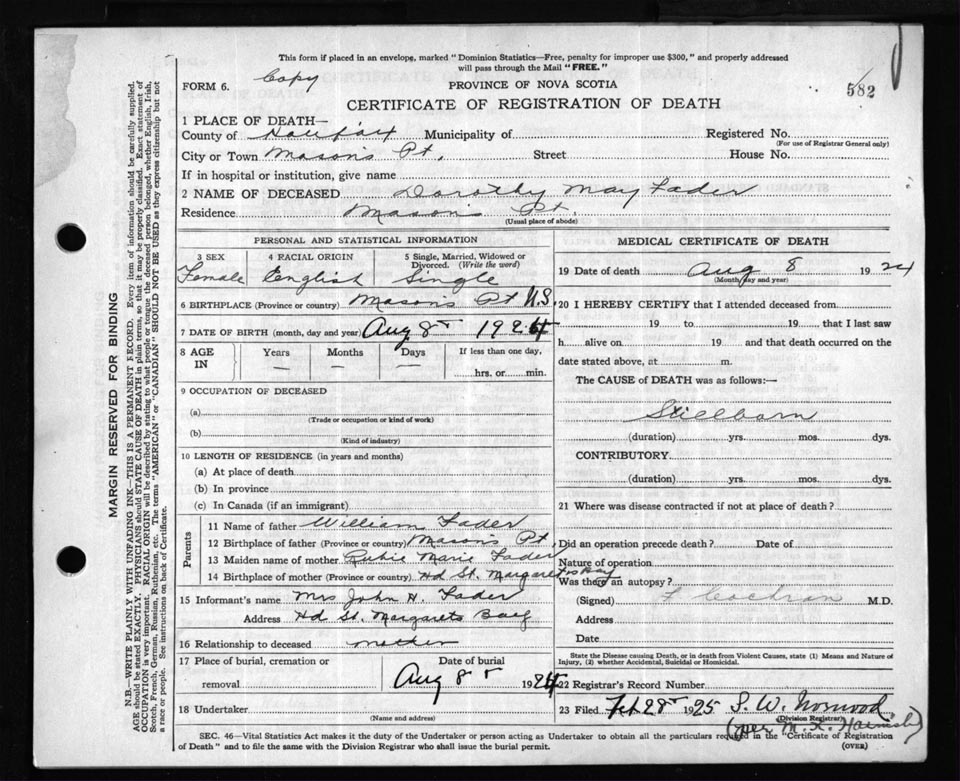 This form if placed in an envelope, marked "Dominion Statistics—Free, penalty for improper use $300," and properly addressed
will pass through the Mail "FREE."
Copy
FORM 6.
PROVINCE OF NOVA SCOTIA
582
CERTIFICATE OF REGISTRATION OF DEATH
1 PLACE OF DEATH—
County of Halifax Municipality of Registered No.
(For use of Registrar General only)
City or Town Mason's Pt. Street House No.
If in hospital or institution, give name
2 NAME OF DECEASED Dorothy May Fader
Residence Mason's Pt.
(Usual place of abode)
PERSONAL AND STATISTICAL INFORMATION
3 SEX 4 RACIAL ORIGIN 5 Single, Married, Widowed or
Divorced. (Write the word)
Female English Single
6 BIRTHPLACE (Province or country) Mason's Pt N.S.
7 DATE OF BIRTH (month, day and year) Aug 8 1924
8 AGE IN Years Months Days If less than one day,
— — — hrs. or min.
9 OCCUPATION OF DECEASED
(a)
(Trade or occupation or kind of work)
(b)
(Kind of industry)
10 LENGTH OF RESIDENCE (in years and months)
(a) At place of death
(b) In province
(c) In Canada (if an immigrant)
Parents
11 Name of father William Fader
12 Birthplace of father (Province or country) Mason's Pt.
13 Maiden name of mother Rubie Marie Fader
14 Birthplace of mother (Province or country) Hd St. Margaret's Bay
15 Informant's name Mrs John H. Fader
Address Hd St. Margarets Bay
16 Relationship to deceased mother
17 Place of burial, cremation or Date of burial
removal Aug 8 1924
18 Undertaker
(Name and address)
MEDICAL CERTIFICATE OF DEATH
19 Date of death Aug 8 1924
(Month, day and year)
20 I HEREBY CERTIFY that I attended deceased from
19 to 19 that I last saw
h alive on 19 and that death occurred on the
date stated above, at m.
The CAUSE of DEATH was as follows:—
Stillborn
(duration) yrs. mos. dys.
CONTRIBUTORY
(duration) yrs. mos. dys.
21 Where was disease contracted if not at place of death?
Did an operation precede death? Date of
Nature of operation
Was there an autopsy?
(Signed) F Cochran M.D.
Address
Date
State the Disease causing Death, or in death from Violent Causes, state (1) Means and Nature of
Injury, (2) whether Accidental, Suicidal or Homicidal.
22 Registrar's Record Number
23 Filed Feb 28 1925 S. W. Norwood
(Division Registrar)
(per M. L.
SEC. 46—Vital Statistics Act makes it the duty of the Undertaker or person acting as Undertaker to obtain all the particulars required in the "Certificate of Registration
of Death" and to file the same with the Division Registrar who shall issue the burial permit. (OVER)
MARGIN RESERVED FOR BINDING
N.B.—WRITE PLAINLY WITH UNFADING INK—THIS IS A PERMANENT RECORD. Every item of information should be carefully supplied.
AGE should be stated EXACTLY. PHYSICIANS should STATE CAUSE OF DEATH in plain terms, so that it may be properly classified. Exact statement of
OCCUPATION is very important. RACIAL ORIGIN will be described by stating to what people or tongue the deceased person belonged, whether English, Irish,
Scotch, French, German, Russian, Ruthenian, etc. The terms "AMERICAN" or "CANADIAN" SHOULD NOT BE USED as they express citizenship but not
a race or people. See instructions on back of Certificate.